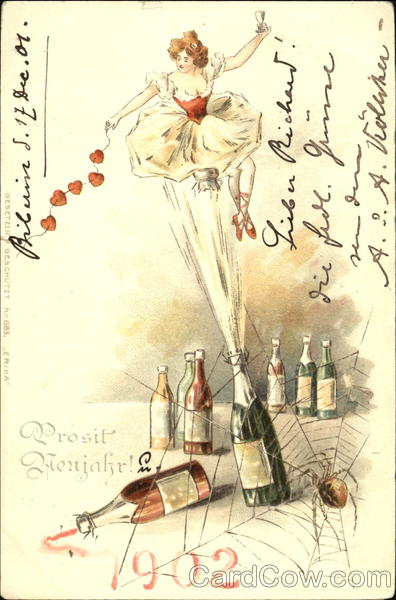 d. 17 Dec. 01.
Lieber Richard!
die frdl. Grüsse
von dem
A. u. A.
GESETZLICH GESCHÜTZT. No 683. „ERIKA"
Prosit
Neujahr! u.
1902
CardCow.com